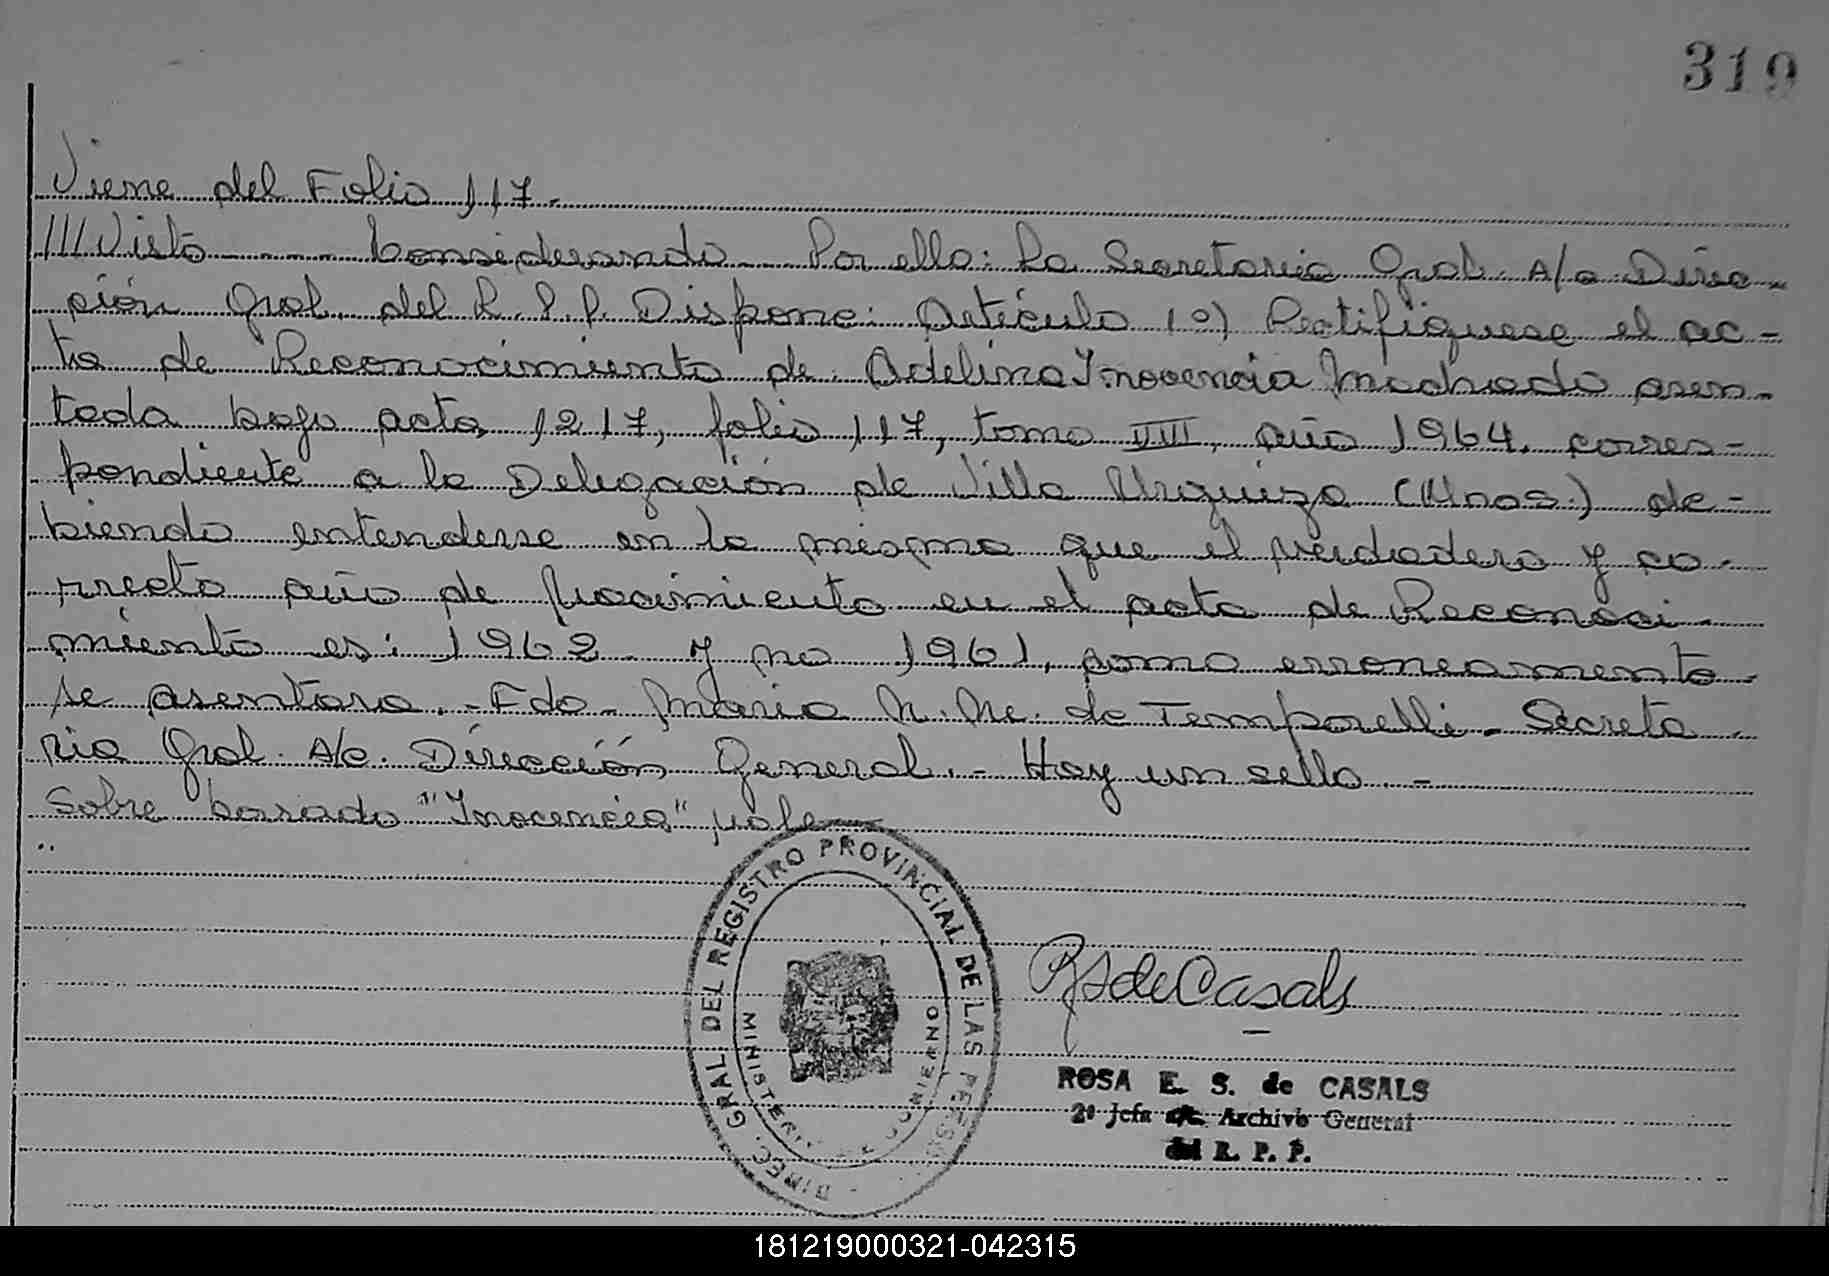 319
Viene del Folio 117.
///Visto ---- Considerando --- Por ello: La Secretaria Gral. A/c Direc-
ción Gral. del R. P. P. Dispone: Artículo 1º) Rectifíquese el ac-
ta de Reconocimiento de Adelina Inocencia Machado asen-
tada bajo acta 1217, folio 117, tomo año 1964, corres-
pondiente a la Delegación de Villa Urquiza (Mnas.) de-
biendo entenderse en la misma que el verdadero y co-
rrecto año de Nacimiento en el acta de Reconoci-
miento es: 1962 y no 1961, como erroneamente
se asentara. - Fdo - María de Temporelli - Secreta
ria Gral. A/c. Dirección General. - Hay un sello. -
Sobre borrado "Inocencia" vale
DIREC. GRAL DEL REGISTRO PROVINCIAL DE LAS PERS
MINISTERI GOBIERNO
RS de Casals
ROSA E. S. de CASALS
2º Jefa Archivo General
del R. P. P.
181219000321-042315